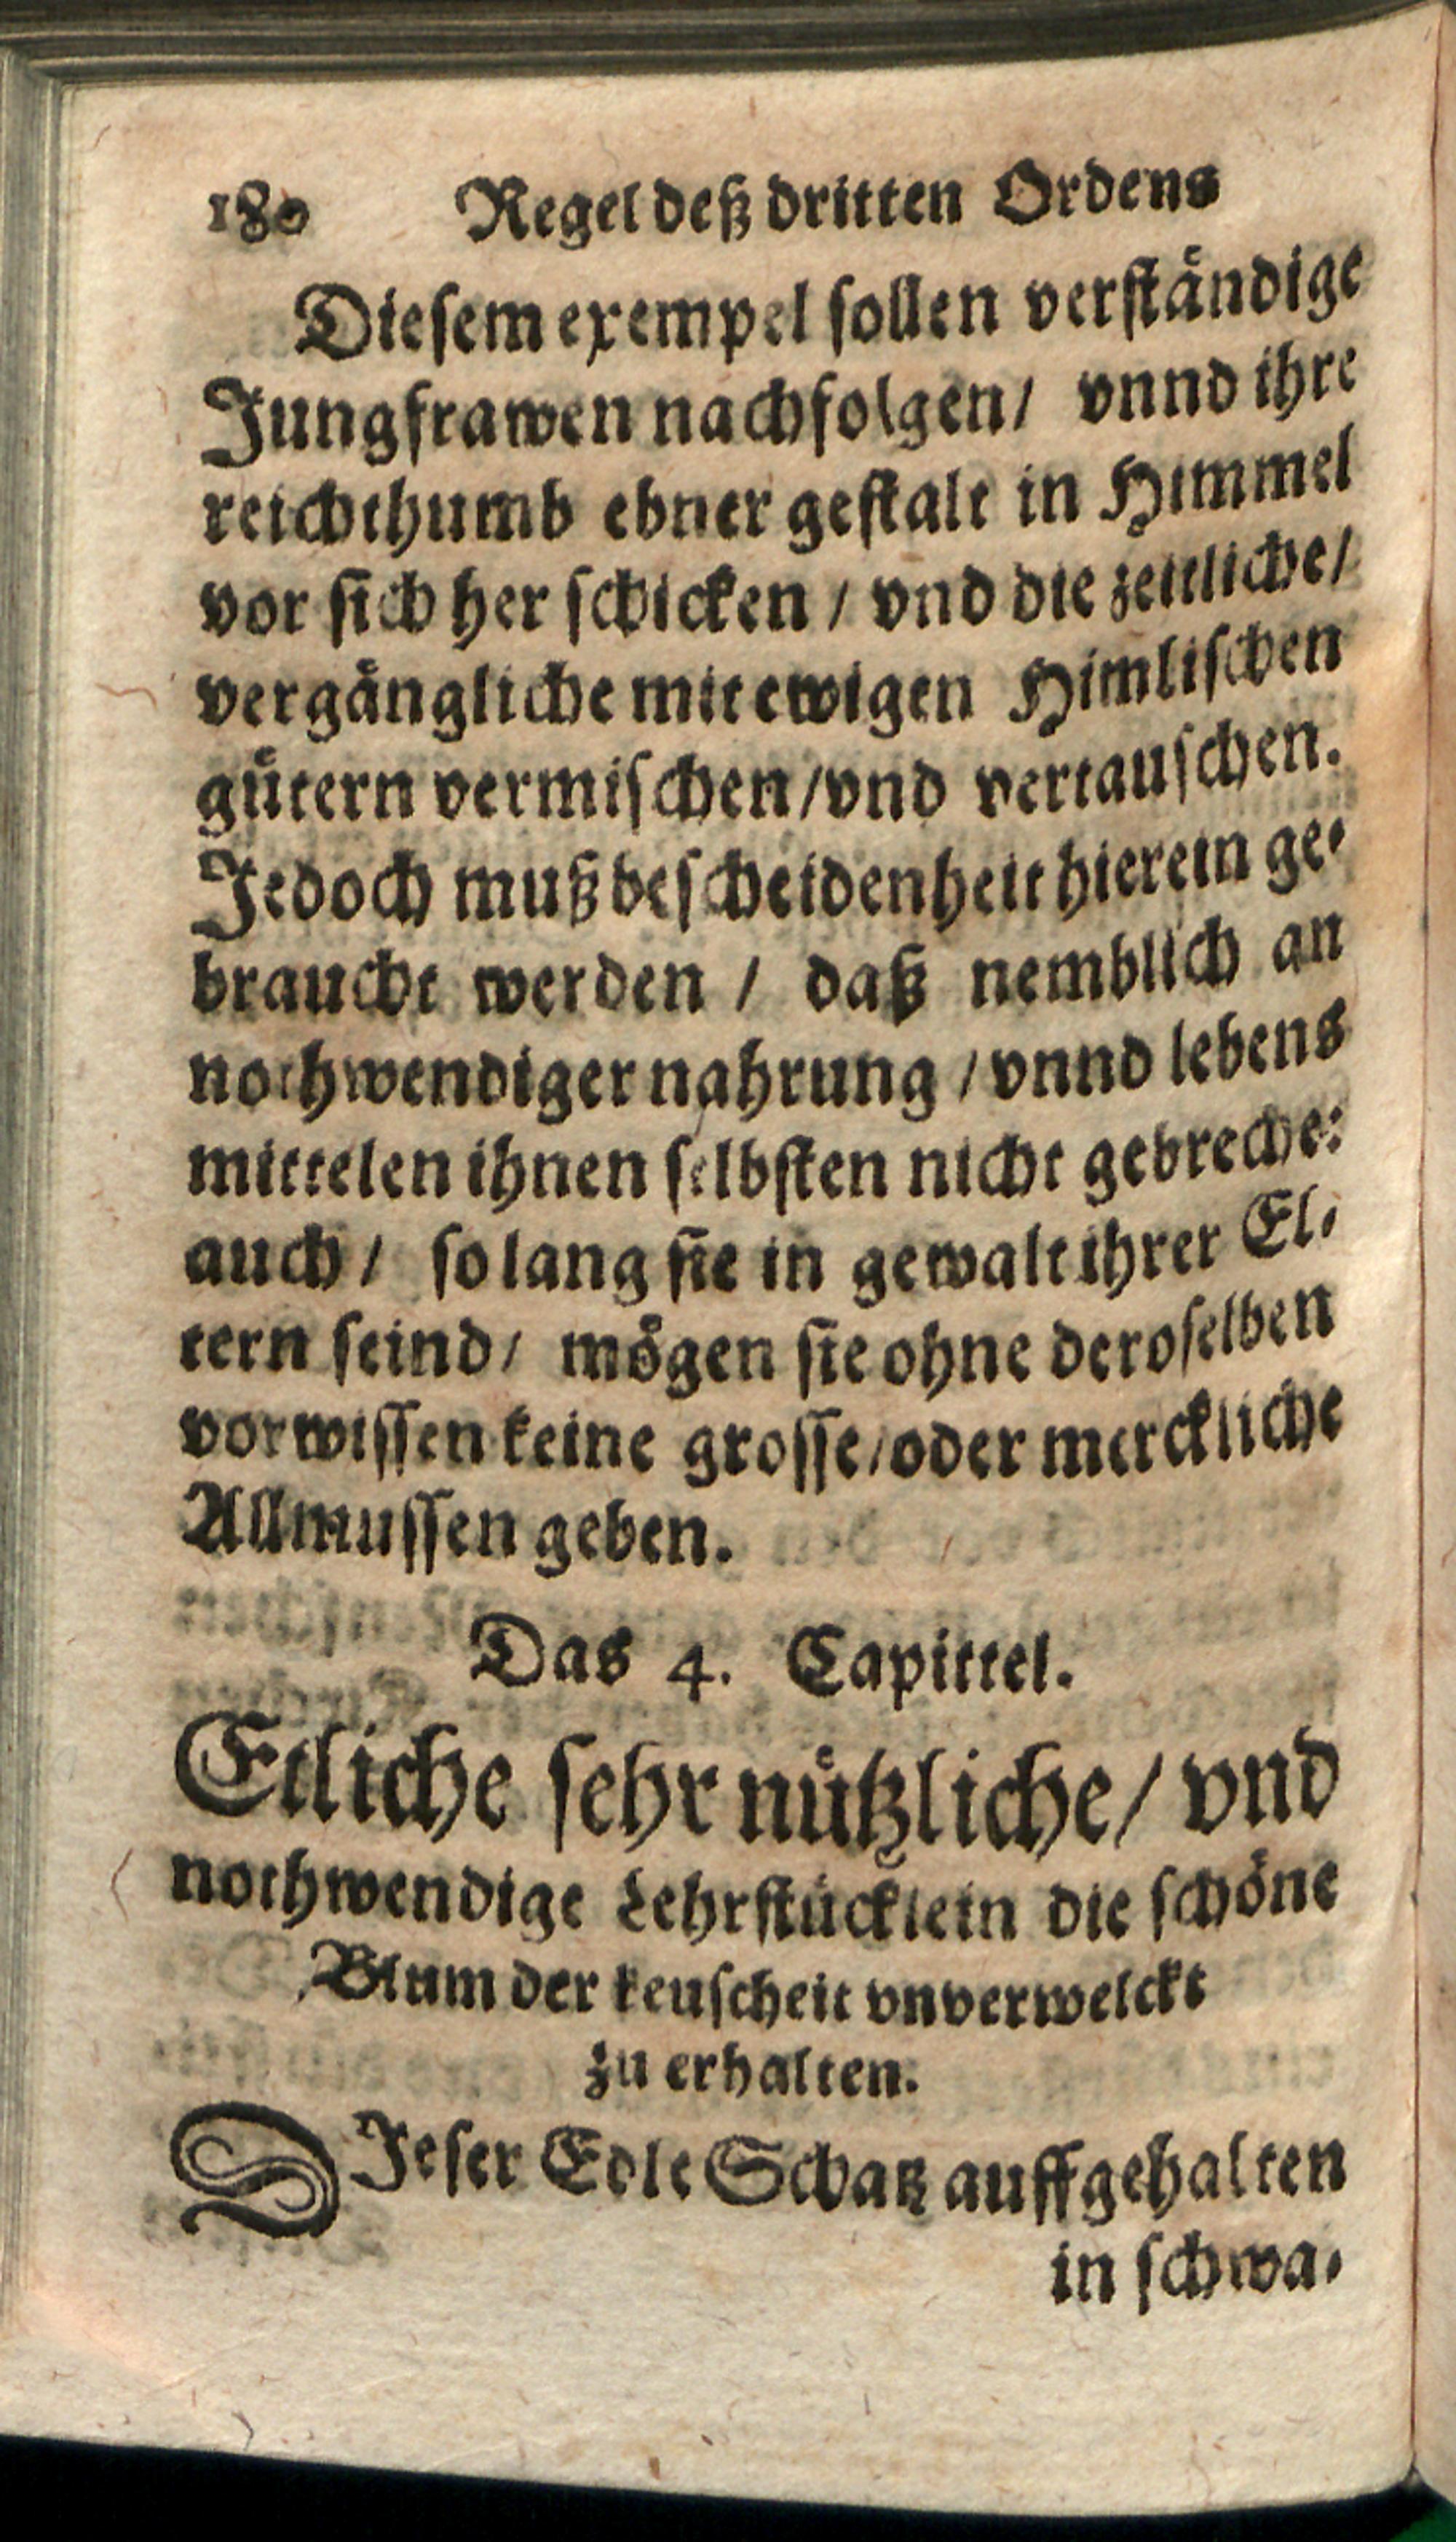 180 Regel deß dritten Ordens
Diesem exempel sollen verständige
Jungfrawen nachfolgen/ vnnd ihre
reichthumb ebner gestalt in Himmel
vor sich her schicken / vnd die zeitliche/
vergängliche mit ewigen Himlischen
gütern vermischen/vnd vertauschen.
Jedoch muß bescheidenheit hierein ge-
braucht werden / daß nemblich an
nothwendiger nahrung / vnnd lebens
mittelen ihnen selbsten nicht gebreche:
auch / so lang sie in gewalt ihrer El-
tern seind/ mögen sie ohne deroselben
vorwissen keine grosse/oder merckliche
Allmussen geben.
Das 4. Capittel.
Etliche sehr nützliche/ vnd
nothwendige Lehrstücklein die schöne
Blum der keuscheit vnverwelckt
zu erhalten.
DJeser Edle Schatz auffgehalten
in schwa-